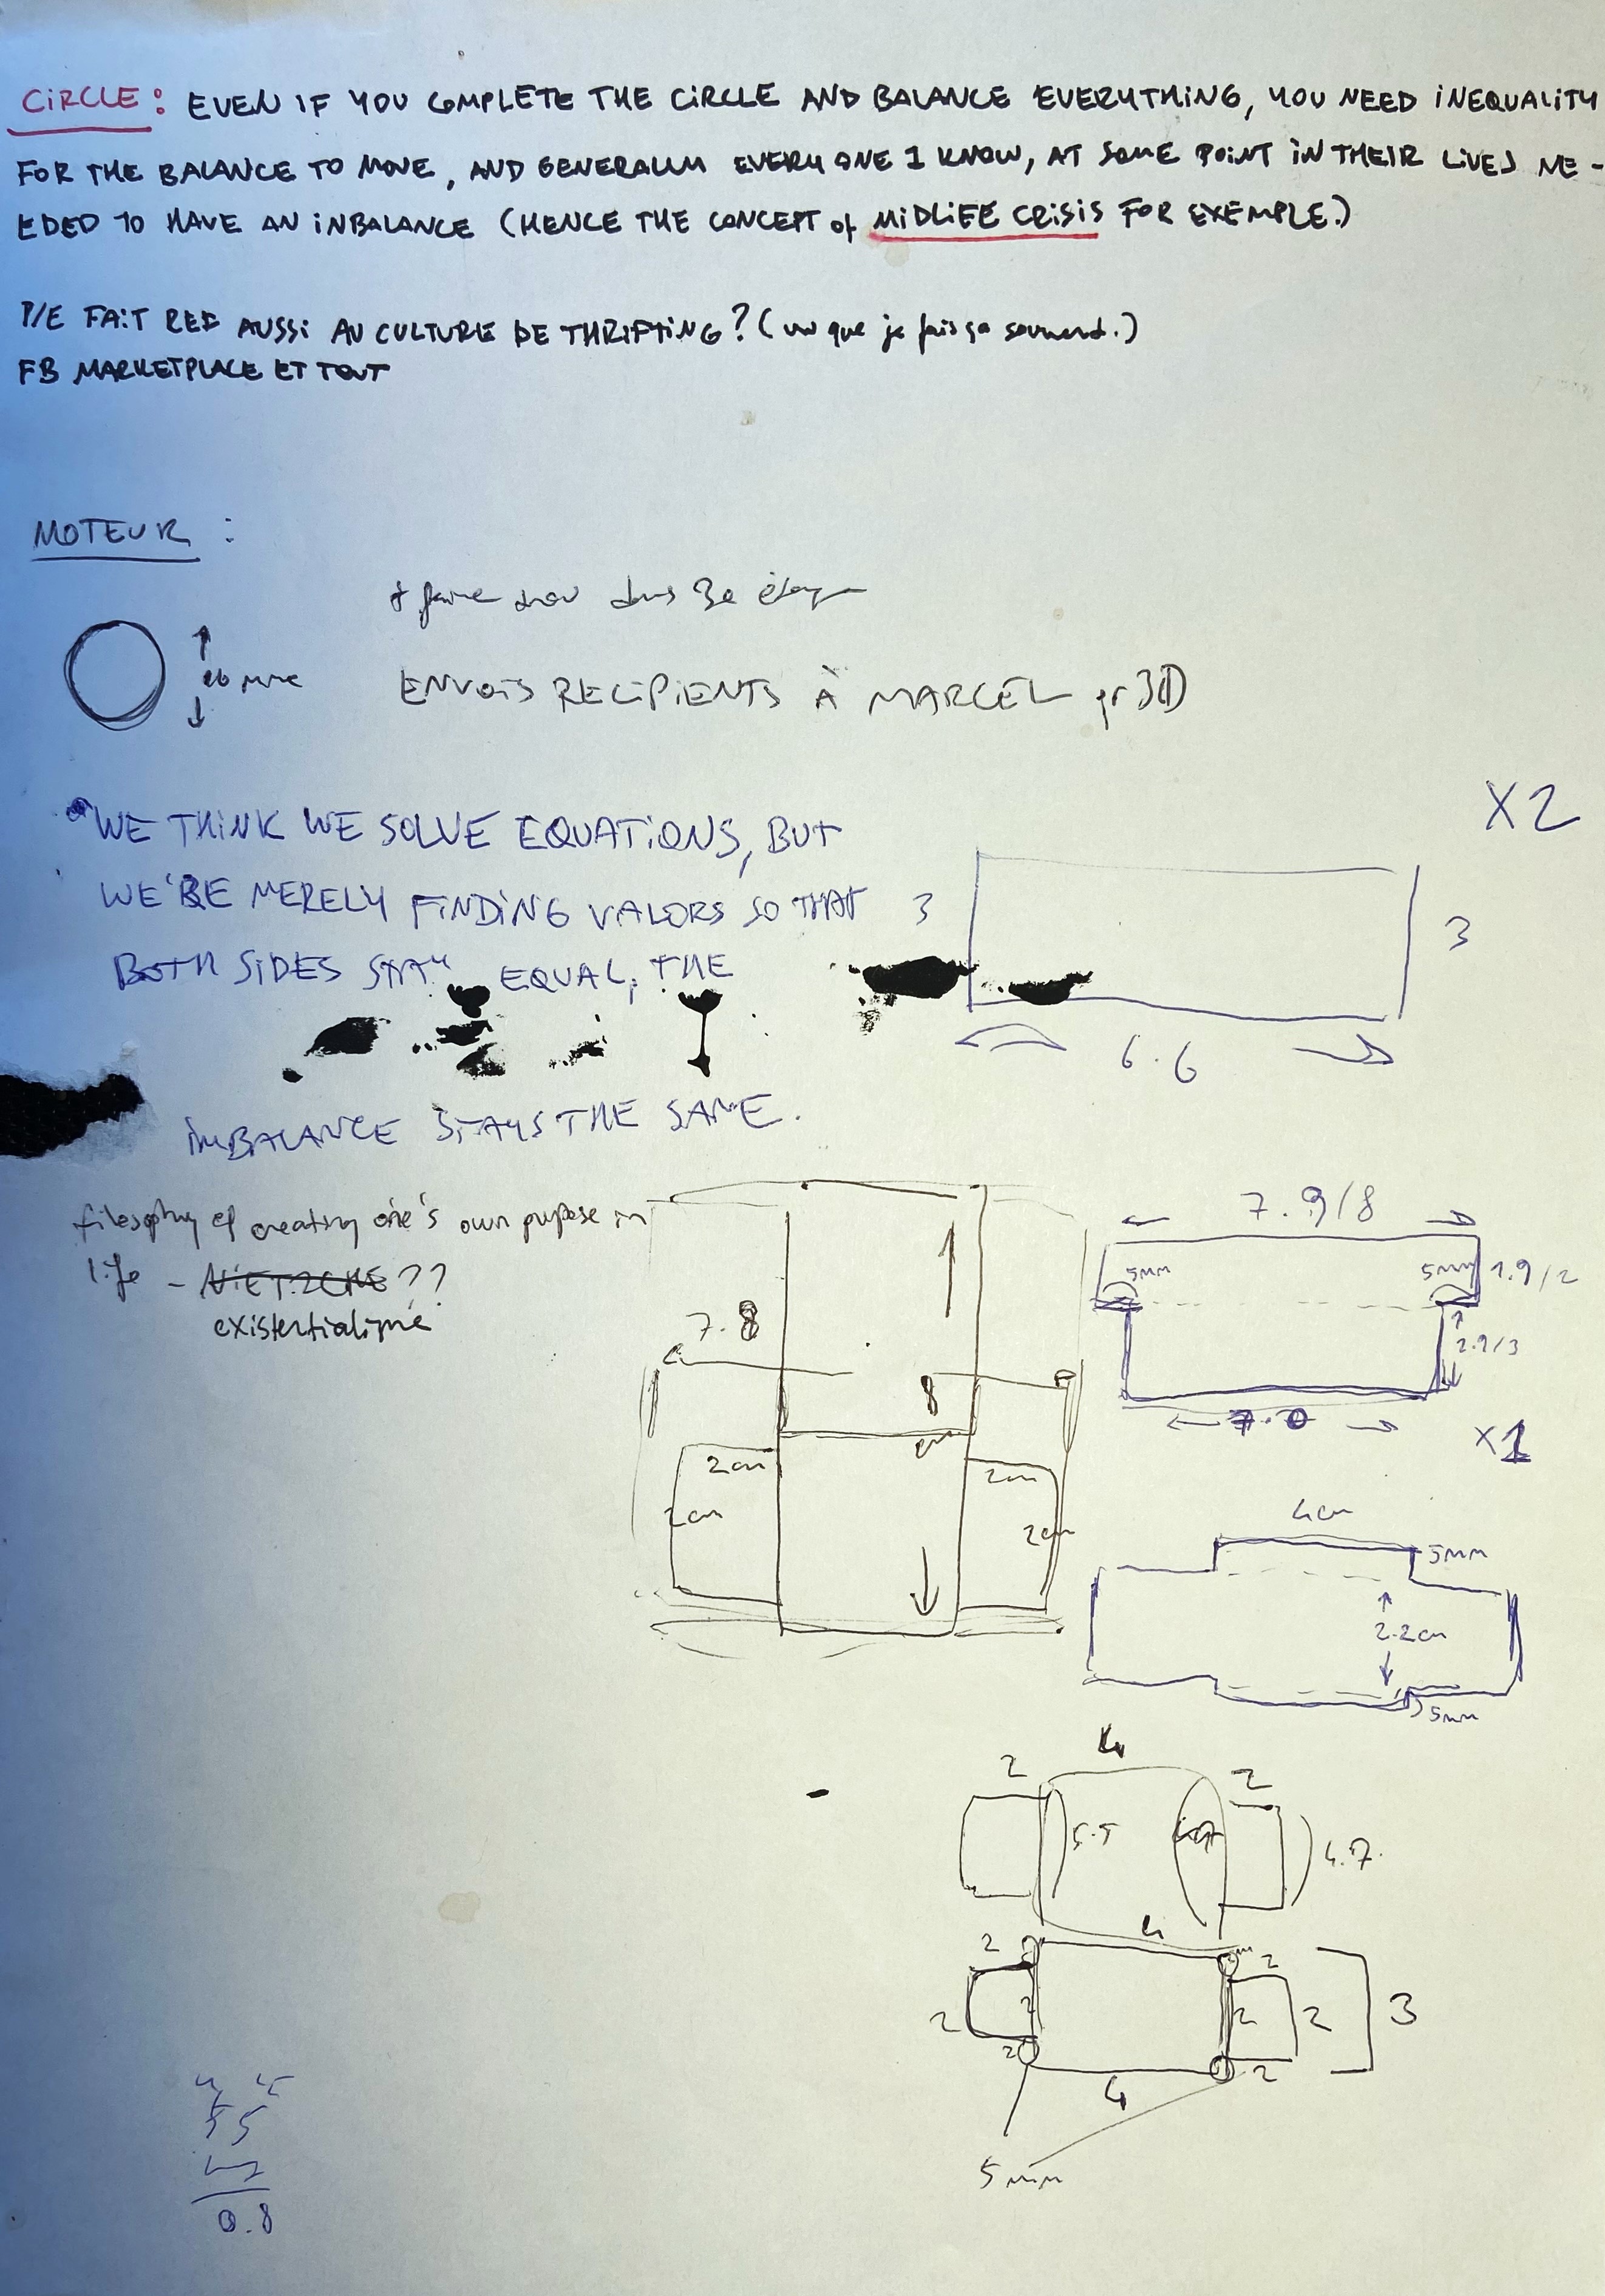 CIRCLE: EVEN IF YOU COMPLETE THE CIRCLE AND BALANCE EVERYTHING, YOU NEED INEQUALITY
FOR THE BALANCE TO MOVE, AND GENERALLY EVERY ONE I KNOW, AT SOME POINT IN THEIR LIVES NE-
EDED TO HAVE AN INBALANCE (HENCE THE CONCEPT of MIDLIFE CRISIS FOR EXEMPLE.)
P/E FAIT REF AUSSI AU CULTURE DE THRIFTING? (vu que je fais ça souvent.)
FB MARKETPLACE ET TOUT
MOTEUR :
faire dans 3e
ENVOIS RECIPIENTS À MARCEL pr 3D
X2
WE THINK WE SOLVE EQUATIONS, BUT
WE'RE MERELY FINDING VALORS SO THAT
BOTH SIDES STAY EQUAL, THE
3
3
6.6
IMBALANCE STAYS THE SAME.
filosophy of creating one's own purpose in
life - NIETZCHE ??
existentialisme
7.9/8
5mm
5mm
1.9/2
2.9/3
7.0
X1
7.8
8
cm
2cm
2cm
2cm
2cm
4cm
5mm
2.2cm
5mm
4
2
2
5.5
4.7
4.7
4
2
2
2
2
2
2
3
2
4
2
5mm
0.8